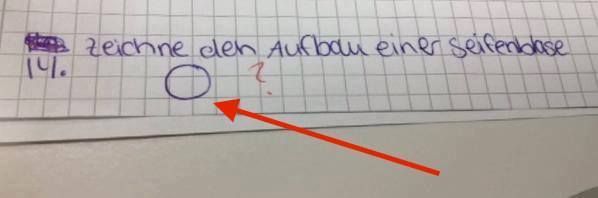 Zeichne den Aufbau einer Seifenblase
14.
?